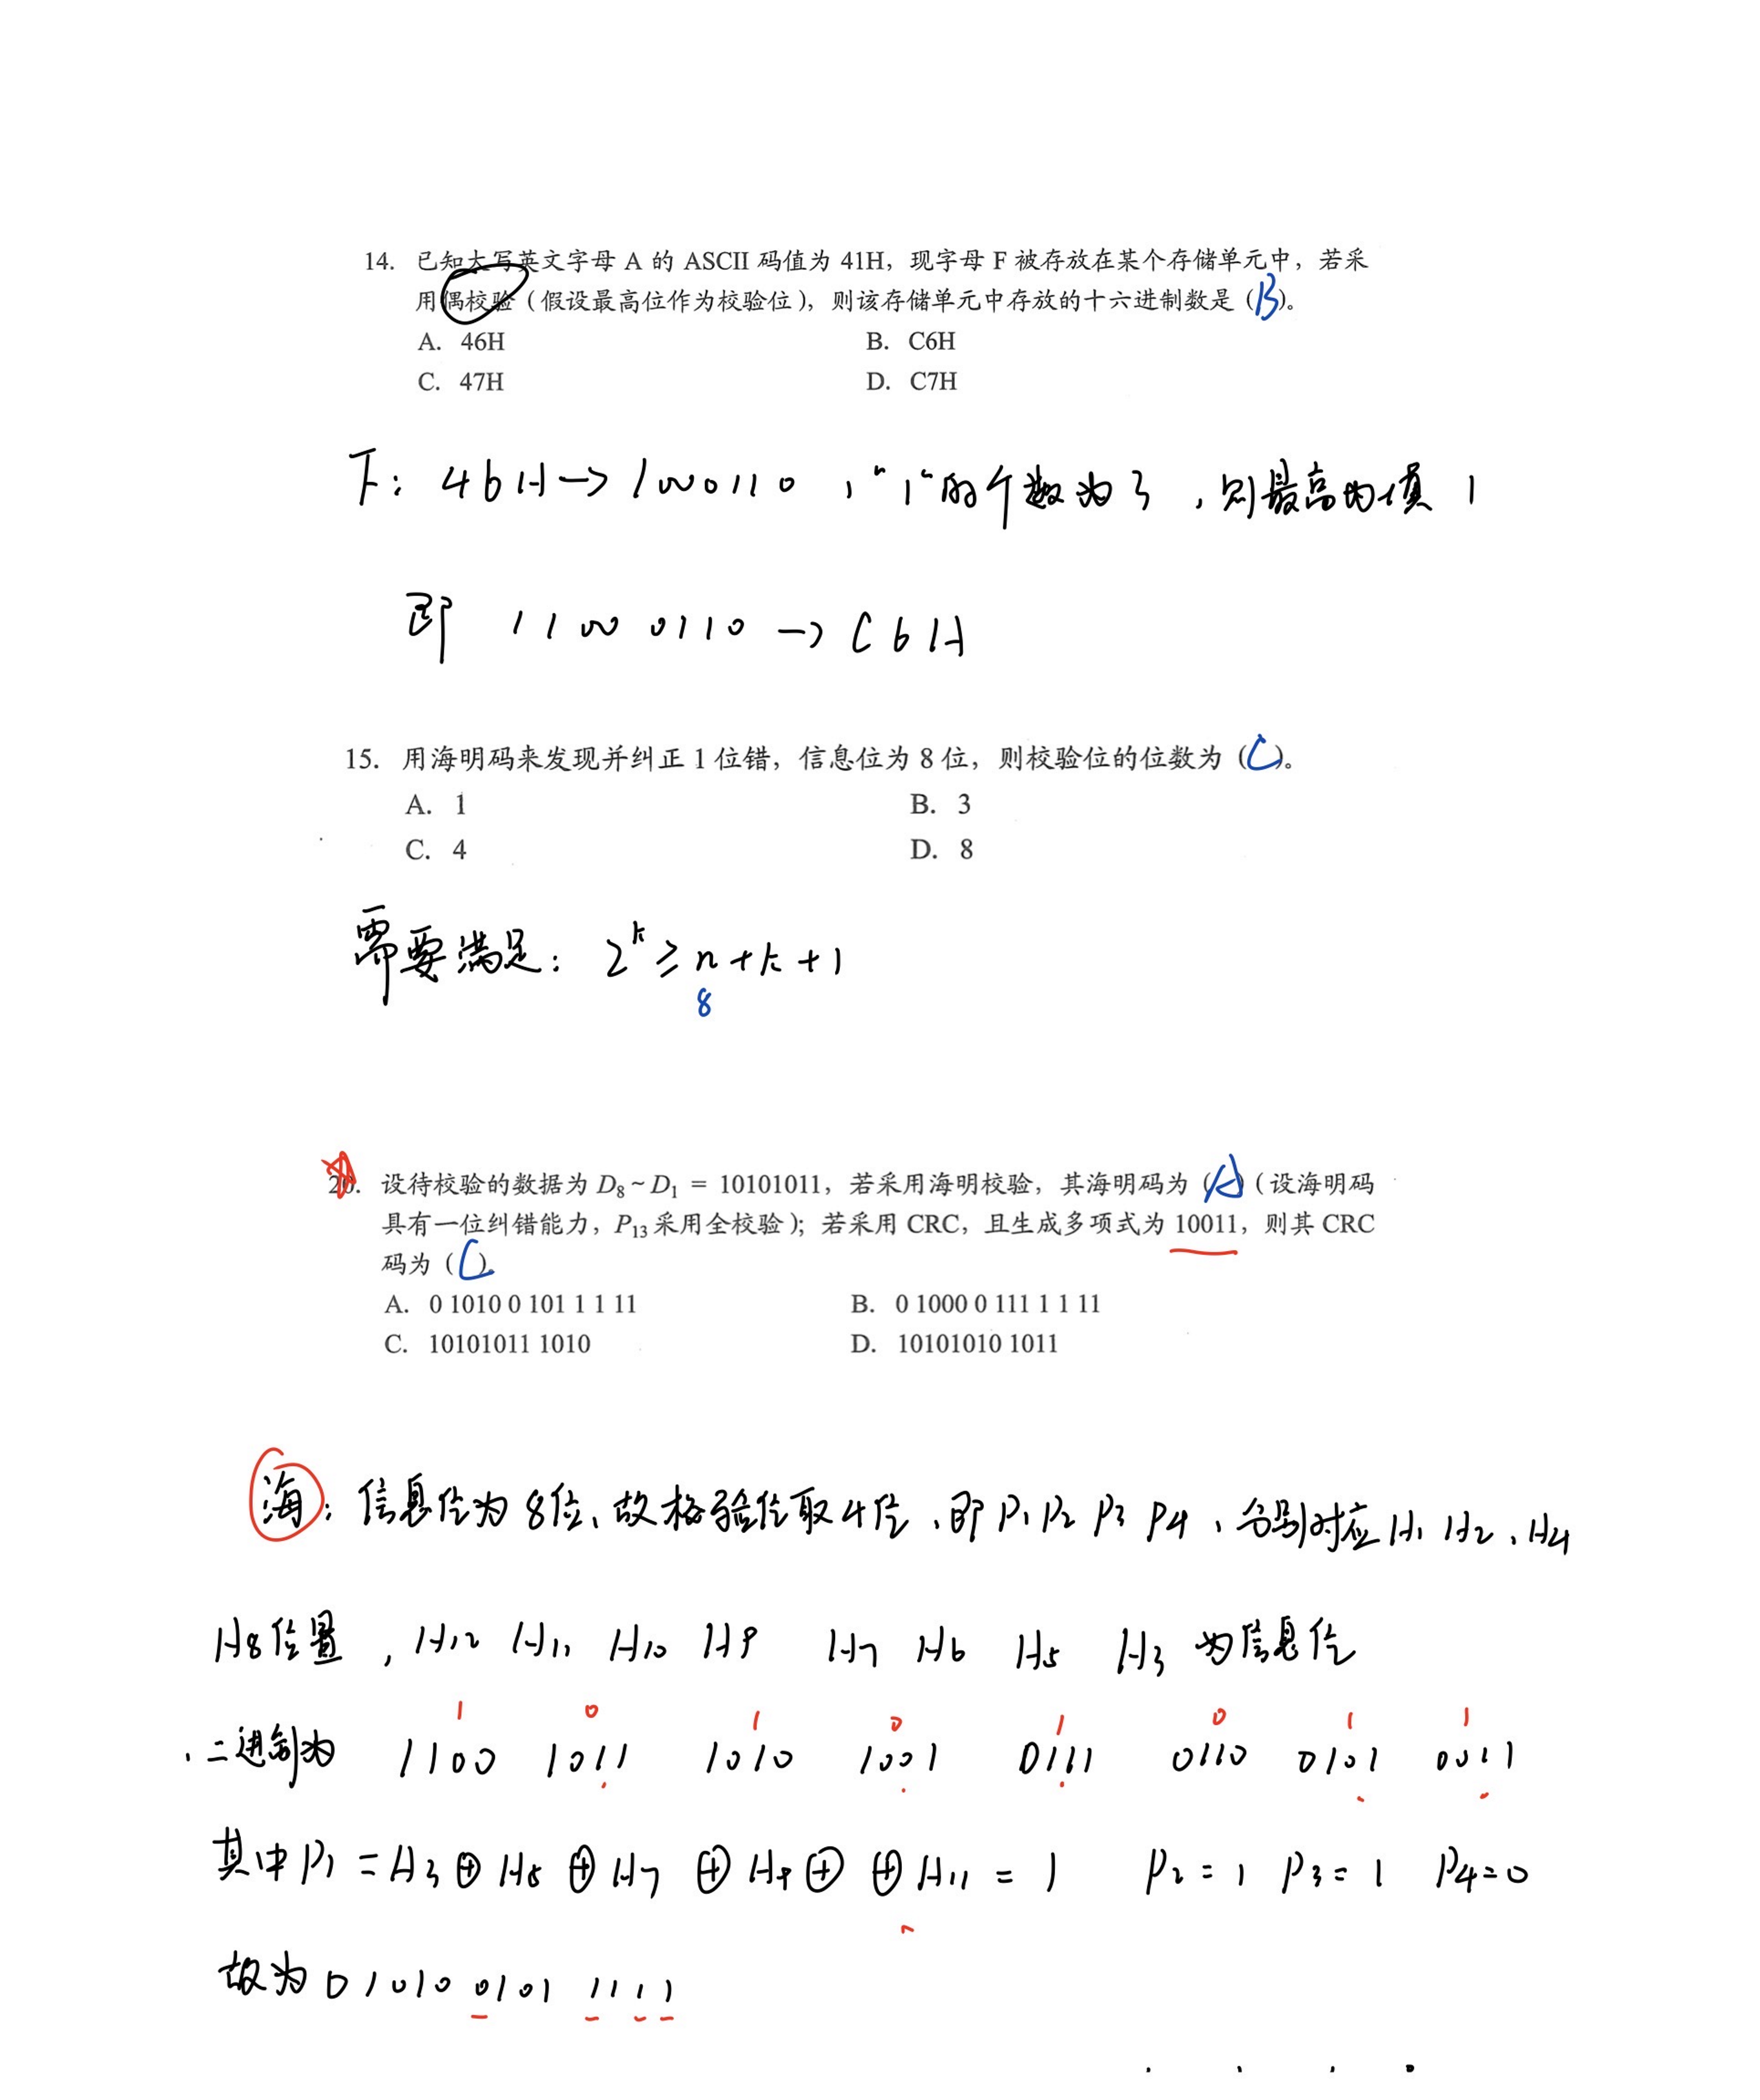 14. 已知大写英文字母 A 的 ASCII 码值为 41H，现字母 F 被存放在某个存储单元中，若采
用偶校验（假设最高位作为校验位），则该存储单元中存放的十六进制数是（B）。
A. 46H B. C6H
C. 47H D. C7H
F： 46H→1000110 ，"1"的个数为3 ，则最高为填 1
即 1100 0110 → C6H
15. 用海明码来发现并纠正 1 位错，信息位为 8 位，则校验位的位数为（C）。
A. 1 B. 3
C. 4 D. 8
需要满足： 2^k ≥ n + k + 1
8
20. 设待校验的数据为 D₈ ~ D₁ = 10101011，若采用海明校验，其海明码为（A）（设海明码
具有一位纠错能力，P₁₃ 采用全校验）；若采用 CRC，且生成多项式为 10011，则其 CRC
码为（C）。
A. 0 1010 0 101 1 1 11 B. 0 1000 0 111 1 1 11
C. 10101011 1010 D. 10101010 1011
海：信息位为8位、故校验位取4位、即P₁ P₂ P₃ P₄、分别对应H₁ H₂、H₄
H₈位置 ，H₁₂ H₁₁ H₁₀ H₉ H₇ H₆ H₅ H₃ 为信息位
1 0 1 0 1 0 1 1
、二进制为 1100 1011 1010 1001 0111 0110 0101 0011
其中P₁ = H₃ ⊕ H₅ ⊕ H₇ ⊕ H₉ ⊕ ⊕ H₁₁ = 1 P₂ = 1 P₃ = 1 P₄ = 0
故为 01010 0101 1111